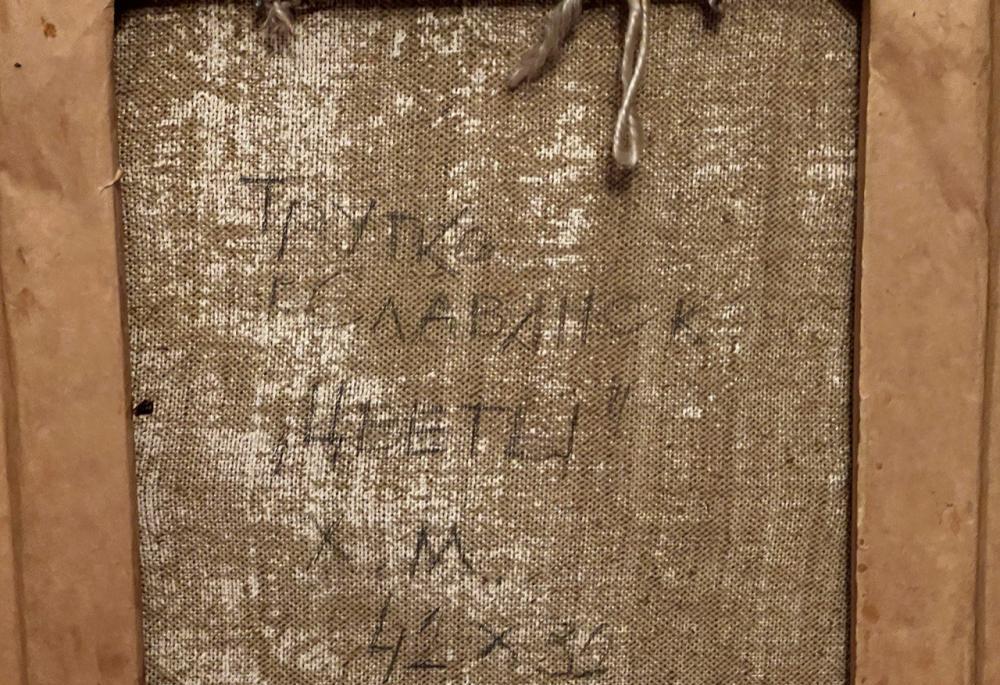 Трутко
г. СЛАВЯНСК
"ЦВЕТЫ"
Х. М.
42 х 36